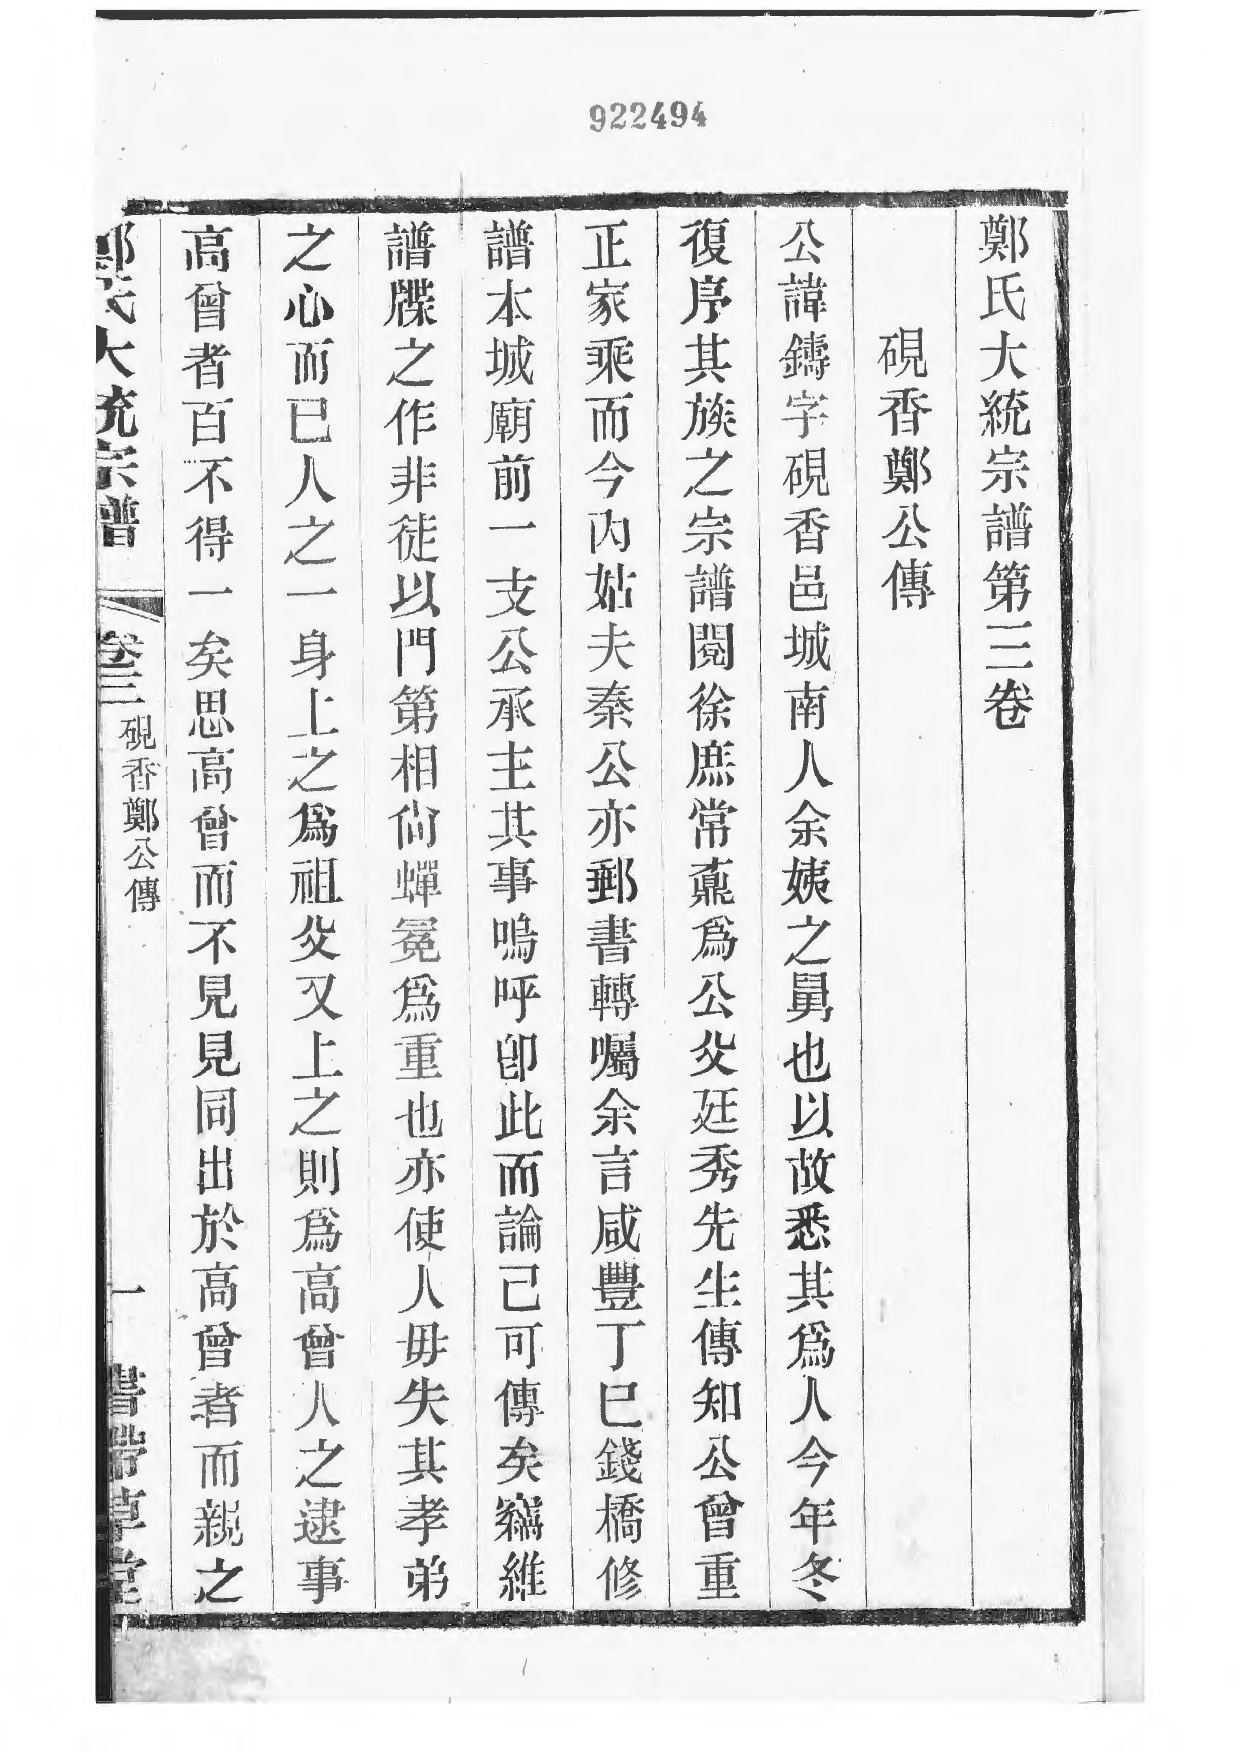 922494
鄭氏大統宗譜第三卷
硯香鄭公傳
公諱鑄字硯香邑城南人余姨之舅也以故悉其爲人今年冬
復序其族之宗譜閱徐庶常鼒爲公父廷秀先生傳知公曾重
正家乘而今內姑夫秦公亦郵書轉囑余言咸豐丁巳錢橋修
譜本城廟前一支公承主其事嗚呼卽此而論己可傳矣竊維
譜牒之作非徒以門第相尙蟬冕爲重也亦使人毋失其孝弟
之心而已人之一身上之爲祖父又上之則爲高曾人之逮事
高曾者百不得一矣思高曾而不見見同出於高曾者而親之
鄭氏大統宗譜 卷三 硯香鄭公傳 一 書帶草堂